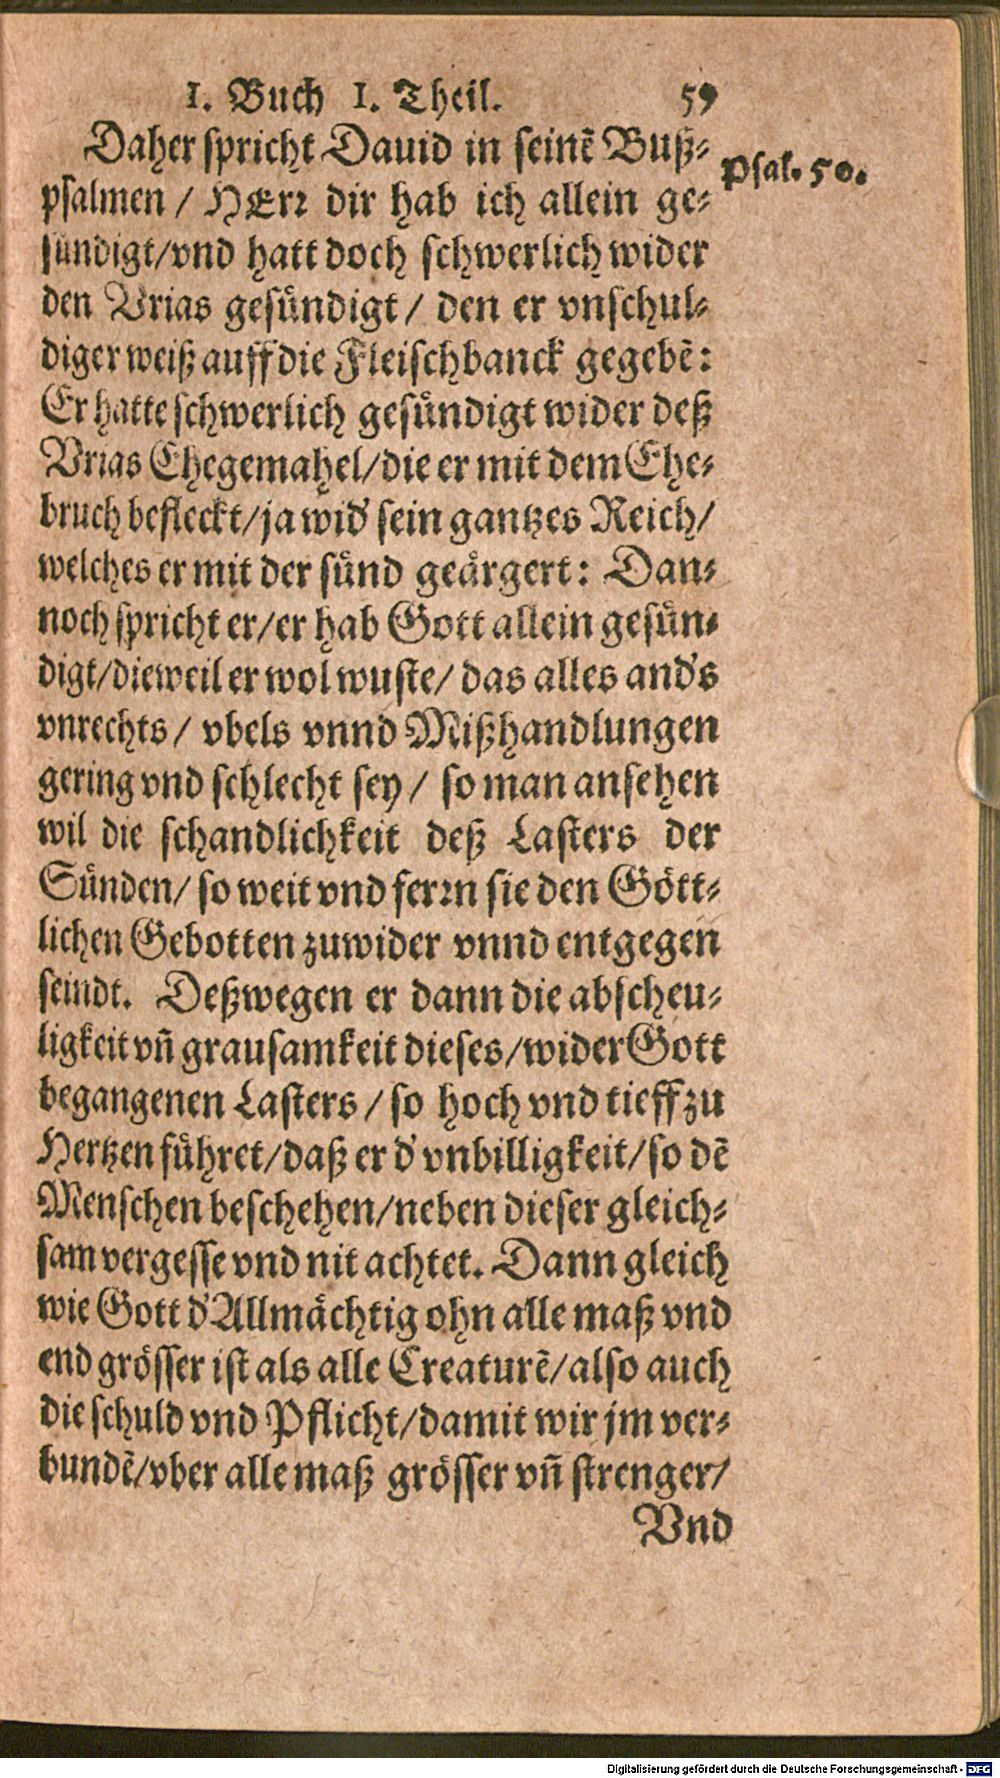 1. Buch 1. Theil. 59
Daher spricht Dauid in seinẽ Buß-
Psal. 50.
psalmen / HErr dir hab ich allein ge-
sündigt/vnd hatt doch schwerlich wider
den Vrias gesündigt / den er vnschul-
diger weiß auff die Fleischbanck gegebẽ:
Er hatte schwerlich gesündigt wider deß
Vrias Ehegemahel/die er mit dem Ehe-
bruch befleckt/ja wid' sein gantzes Reich/
welches er mit der sünd geärgert: Dan-
noch spricht er/er hab Gott allein gesün-
digt/dieweil er wol wuste/ das alles and's
vnrechts/ vbels vnnd Mißhandlungen
gering vnd schlecht sey / so man ansehen
wil die schandlichkeit deß Lasters der
Sünden/ so weit vnd ferrn sie den Gött-
lichen Gebotten zuwider vnnd entgegen
seindt. Deßwegen er dann die abscheu-
ligkeit vñ grausamkeit dieses/wider Gott
begangenen Lasters / so hoch vnd tieff zu
Hertzen führet/daß er d' vnbilligkeit/so dẽ
Menschen beschehen/neben dieser gleich-
sam vergesse vnd nit achtet. Dann gleich
wie Gott d' Allmächtig ohn alle maß vnd
end grösser ist als alle Creaturẽ/also auch
die schuld vnd Pflicht/damit wir jm ver-
bundẽ/vber alle maß grösser vñ strenger/
Vnd
Digitalisierung gefördert durch die Deutsche Forschungsgemeinschaft - DFG